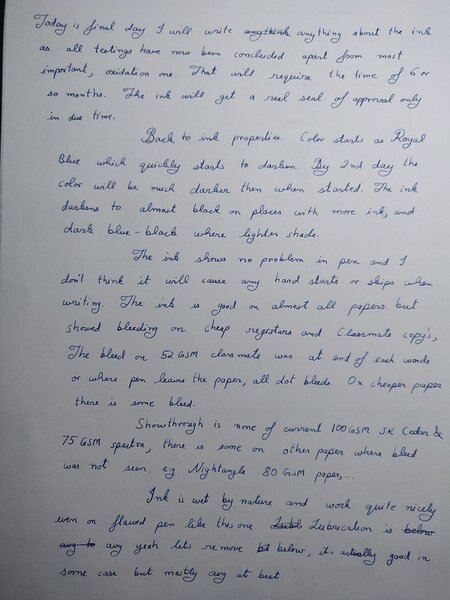 Today is final day I will write anythink anything about the ink
as all testings have now been concluded apart from most
important, oxidation one. That will require the time of 6 or
so months. The ink will get a real seal of approval only
in due time.
Back to ink properties. Color starts as Royal
Blue which quickly starts to darken. By 2nd day the
color will be much darker then when started. The ink
darkens to almost black on places with more ink, and
dark blue-black where lighter shade.
The ink shows no problem in pen and I
don't think it will cause any hard starts or skips when
writing. The ink is good on almost all papers but
showed bleeding on cheap registars and Classmate copy's,
The bleed on 52 GSM classmate was at end of each words
or where pen leaves the paper, all dot bleeds. On cheaper paper
there is some bleed.
Showthrough is none of current 100 GSM SK Cedar &
75 GSM spectra, there is some on other paper where bleed
was not seen. eg Nightangle 80 GSM paper,...
Ink is wet by nature and work quite nicely
even on flawed pen like this one Lubrication is below
avg to avg yeah lets remove below, its actually good in
some case but mostly avg at best.